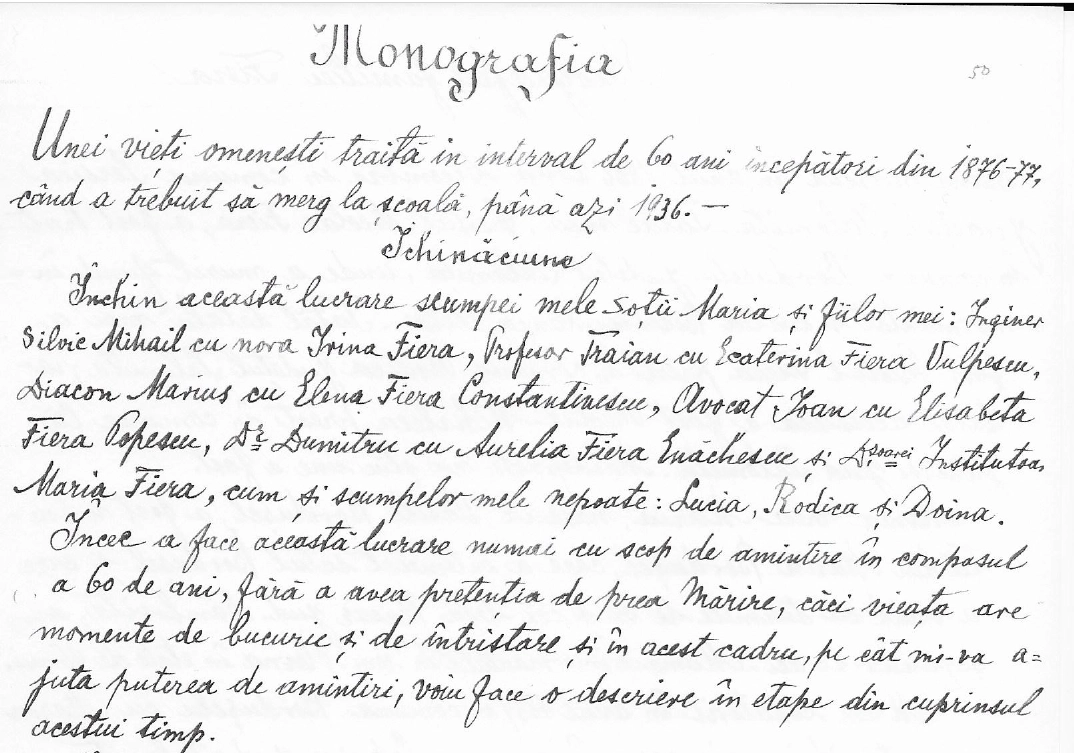 Monografia
50
Unei vieți omenesti traită in interval de 60 ani începători din 1876-77,
când a trebuit să merg la școală, până azi 1936. —
Ichinăciune
Închin această lucrare scumpei mele soții Maria și fiilor mei: Inginer
Silvic Mihail cu nora Irina Fiera, Profesor Traian cu Ecaterina Fiera Vulpescu,
Diacon Marius cu Elena Fiera Constantinescu, Avocat Ioan cu Elisabeta
Fiera Popescu, Dr Dumitru cu Aurelia Fiera Enăchescu si D.șoarei Institutoa,
Maria Fiera, cum si scumpelor mele nepoate: Lucia, Rodica și Doina.
Încec a face această lucrare numai cu scop de amintire în compasul
a 60 de ani, fără a avea pretenția de prea Mărire, căci vieața are
momente de bucurie și de întristare și în acest cadru, pe cât mi-va a=
juta puterea de amintiri, voiu face o descriere în etape din cuprinsul
acestui timp.